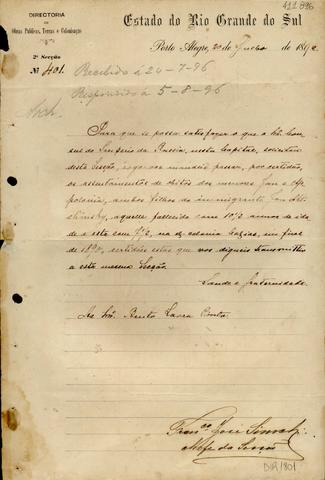 411 896
DIRECTORIA
DE
Obras Publicas, Terras e Colonisação
2ª Secção
Nº 401
Estado do Rio Grande do Sul
Porto Alegre, 20 de Julho de 1896
Recebido á 24-7-96
Respondido á 5-8-96
Arch.
Para que se possa satisfazer o que o Sñr. Con-
sul do Imperio da Russia, nesta Capital, solicitou
desta Secção, rogo-vos mandeis passar, por certidão,
os assentamentos de obitos dos menores Jan e Ap-
polonia, ambos filhos do immigrante Jan
aquelle fallecido com 10½ annos de ida-
de e esta com 7½, na ex-colonia Caxias, em fins
de 1890, certidões estas que vos digneis transmittir
a esta mesma Secção.
Saude e fraternidade.
Ao Sñr. Bento Lavra Pinto.
Franco José
Chefe da Secção
DIR/801